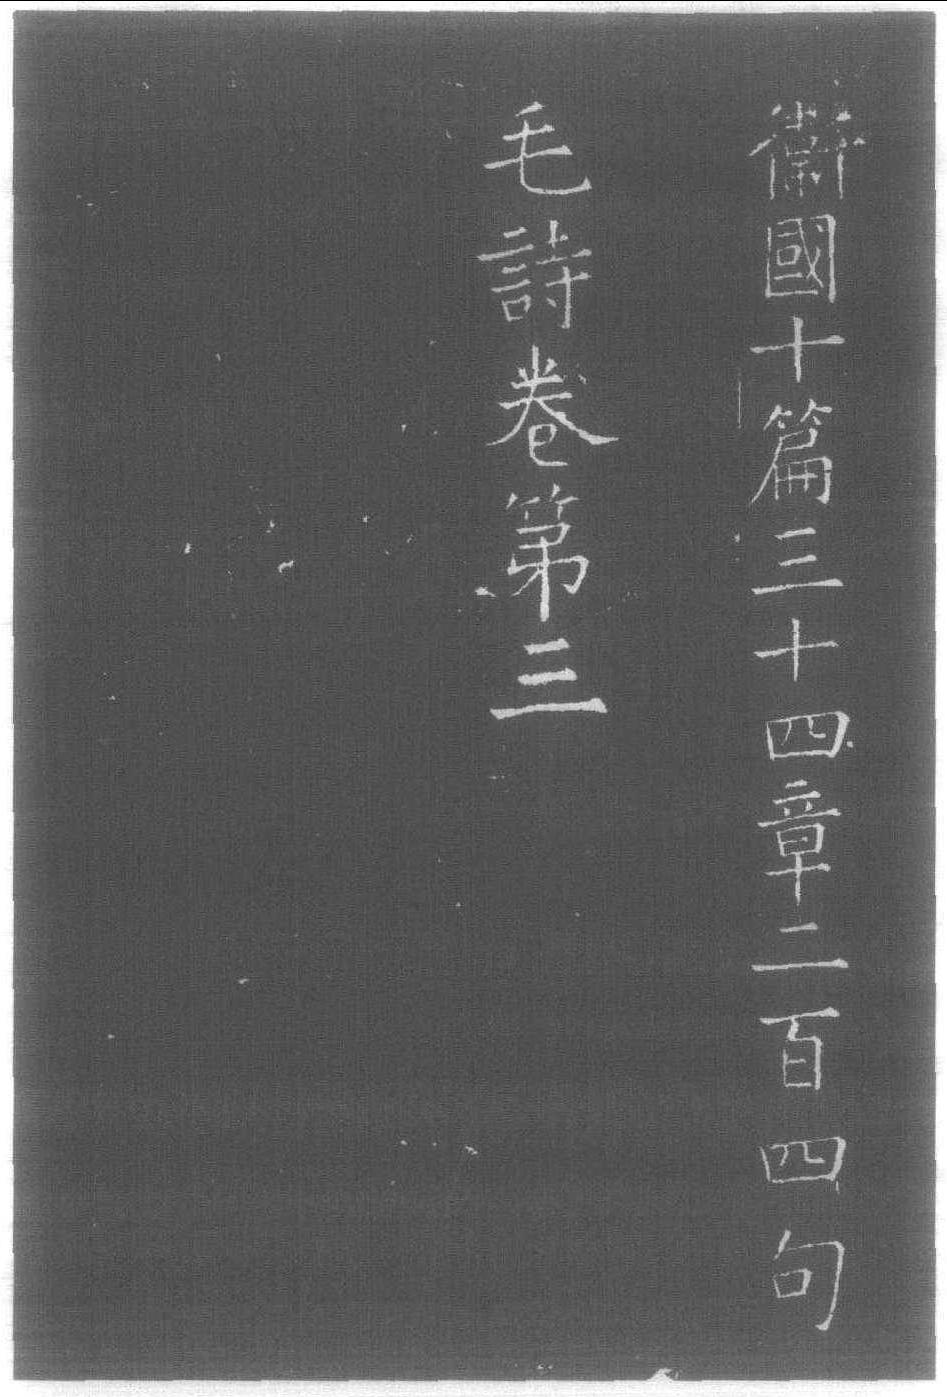 衞國十篇三十四章二百四句
毛詩卷第三